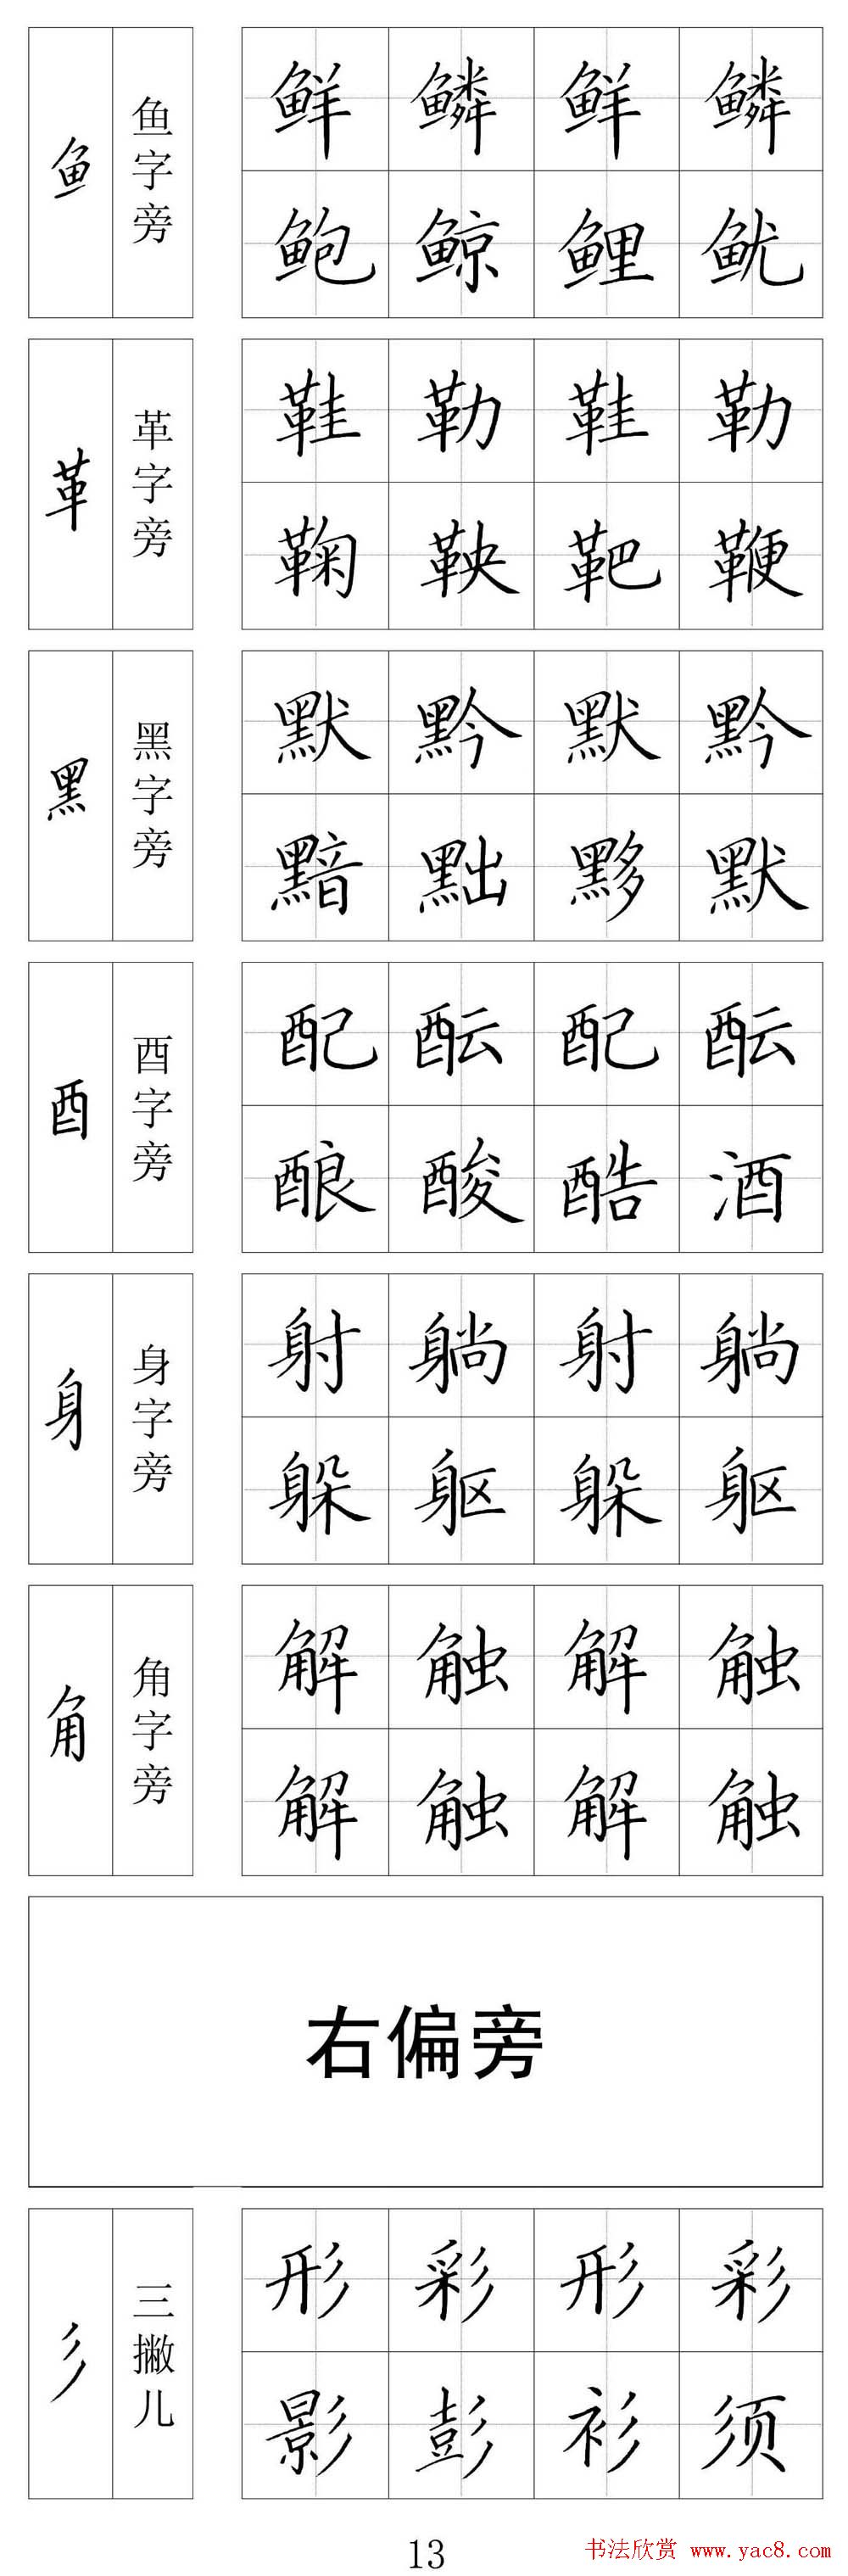 鱼
鱼字旁
鲜鳞鲜鳞
鲍鲸鲤鱿
革
革字旁
鞋勒鞋勒
鞠鞅靶鞭
黑
黑字旁
默黔默黔
黯黜黟默
酉
西字旁
配酝配酝
酿酸酷酒
身
身字旁
射躺射躺
躲躯躲躯
角
角字旁
解触解触
解触解触
右偏旁
彡
三撇儿
形彩形彩
影彭衫须
13
书法欣赏 www.yac8.com